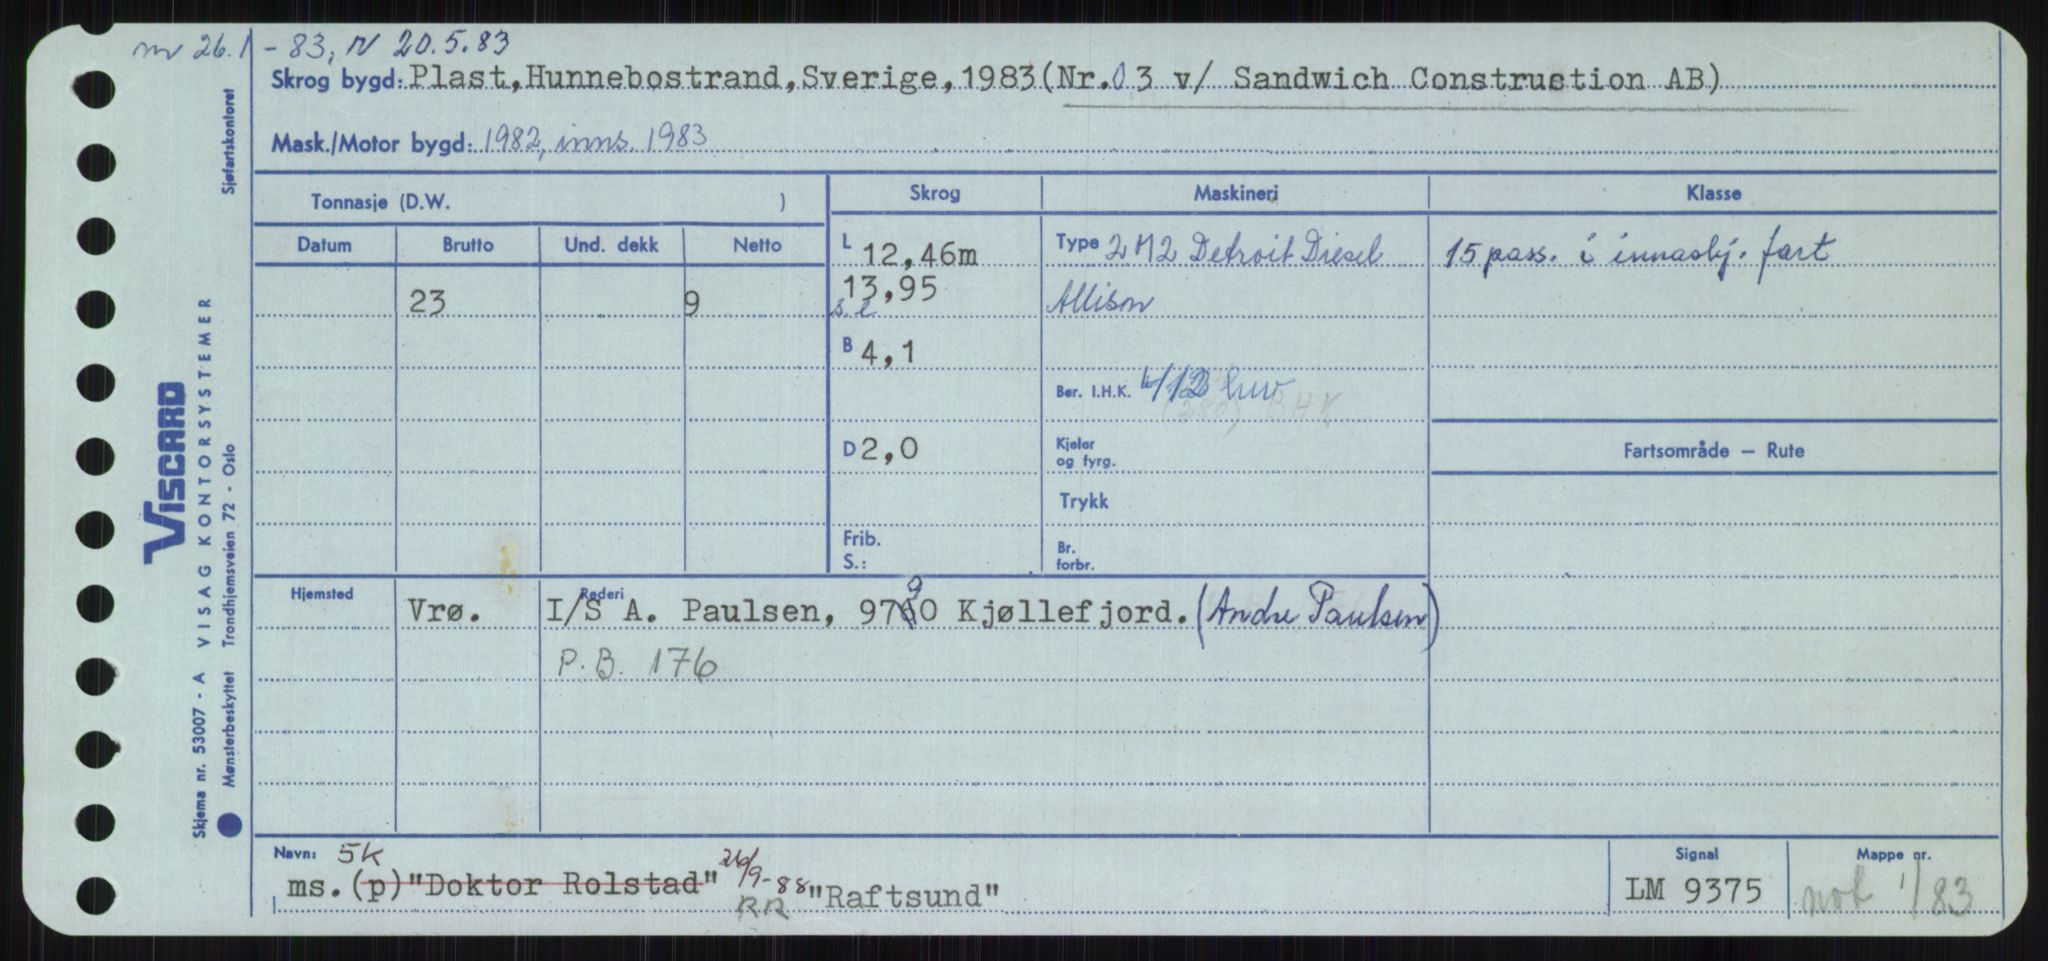 nv 26.1 - 83, N 20.5.83
Skrog bygd: Plast, Hunnebostrand, Sverige, 1983 (Nr. 03 v/ Sandwich Construction AB)
Mask./Motor bygd: 1982, inns. 1983
Tonnasje (D.W. )
Skrog
Maskineri
Klasse
Datum
Brutto
Und. dekk
Netto
L 12,46m
Type 2 M2 Detroit Diesel
15 pass. i innaskj. fart
23
9
13,95
s.l
Allison
B 4,1
Ber. I.H.K. 412 kw
(280) BHK
D 2,0
Kjeler
og fyrg.
Fartsområde — Rute
Trykk
Frib.
S.:
Br.
forbr.
Hjemsted
Rederi
Vrø.
I/S A. Paulsen, 9790 Kjøllefjord. (Andre Paulsen)
P.B. 176
Navn: 5k
ms. (p) "Doktor Rolstad" 26/9-88 "Raftsund"
RR
Signal
LM 9375
Mappe nr.
not 1/83
Sjøfartskontoret
VISCARD
VISAG KONTORSYSTEMER
Trondhjemsveien 72 - Oslo
Skjema nr. 53007 - A
Mønsterbeskyttet